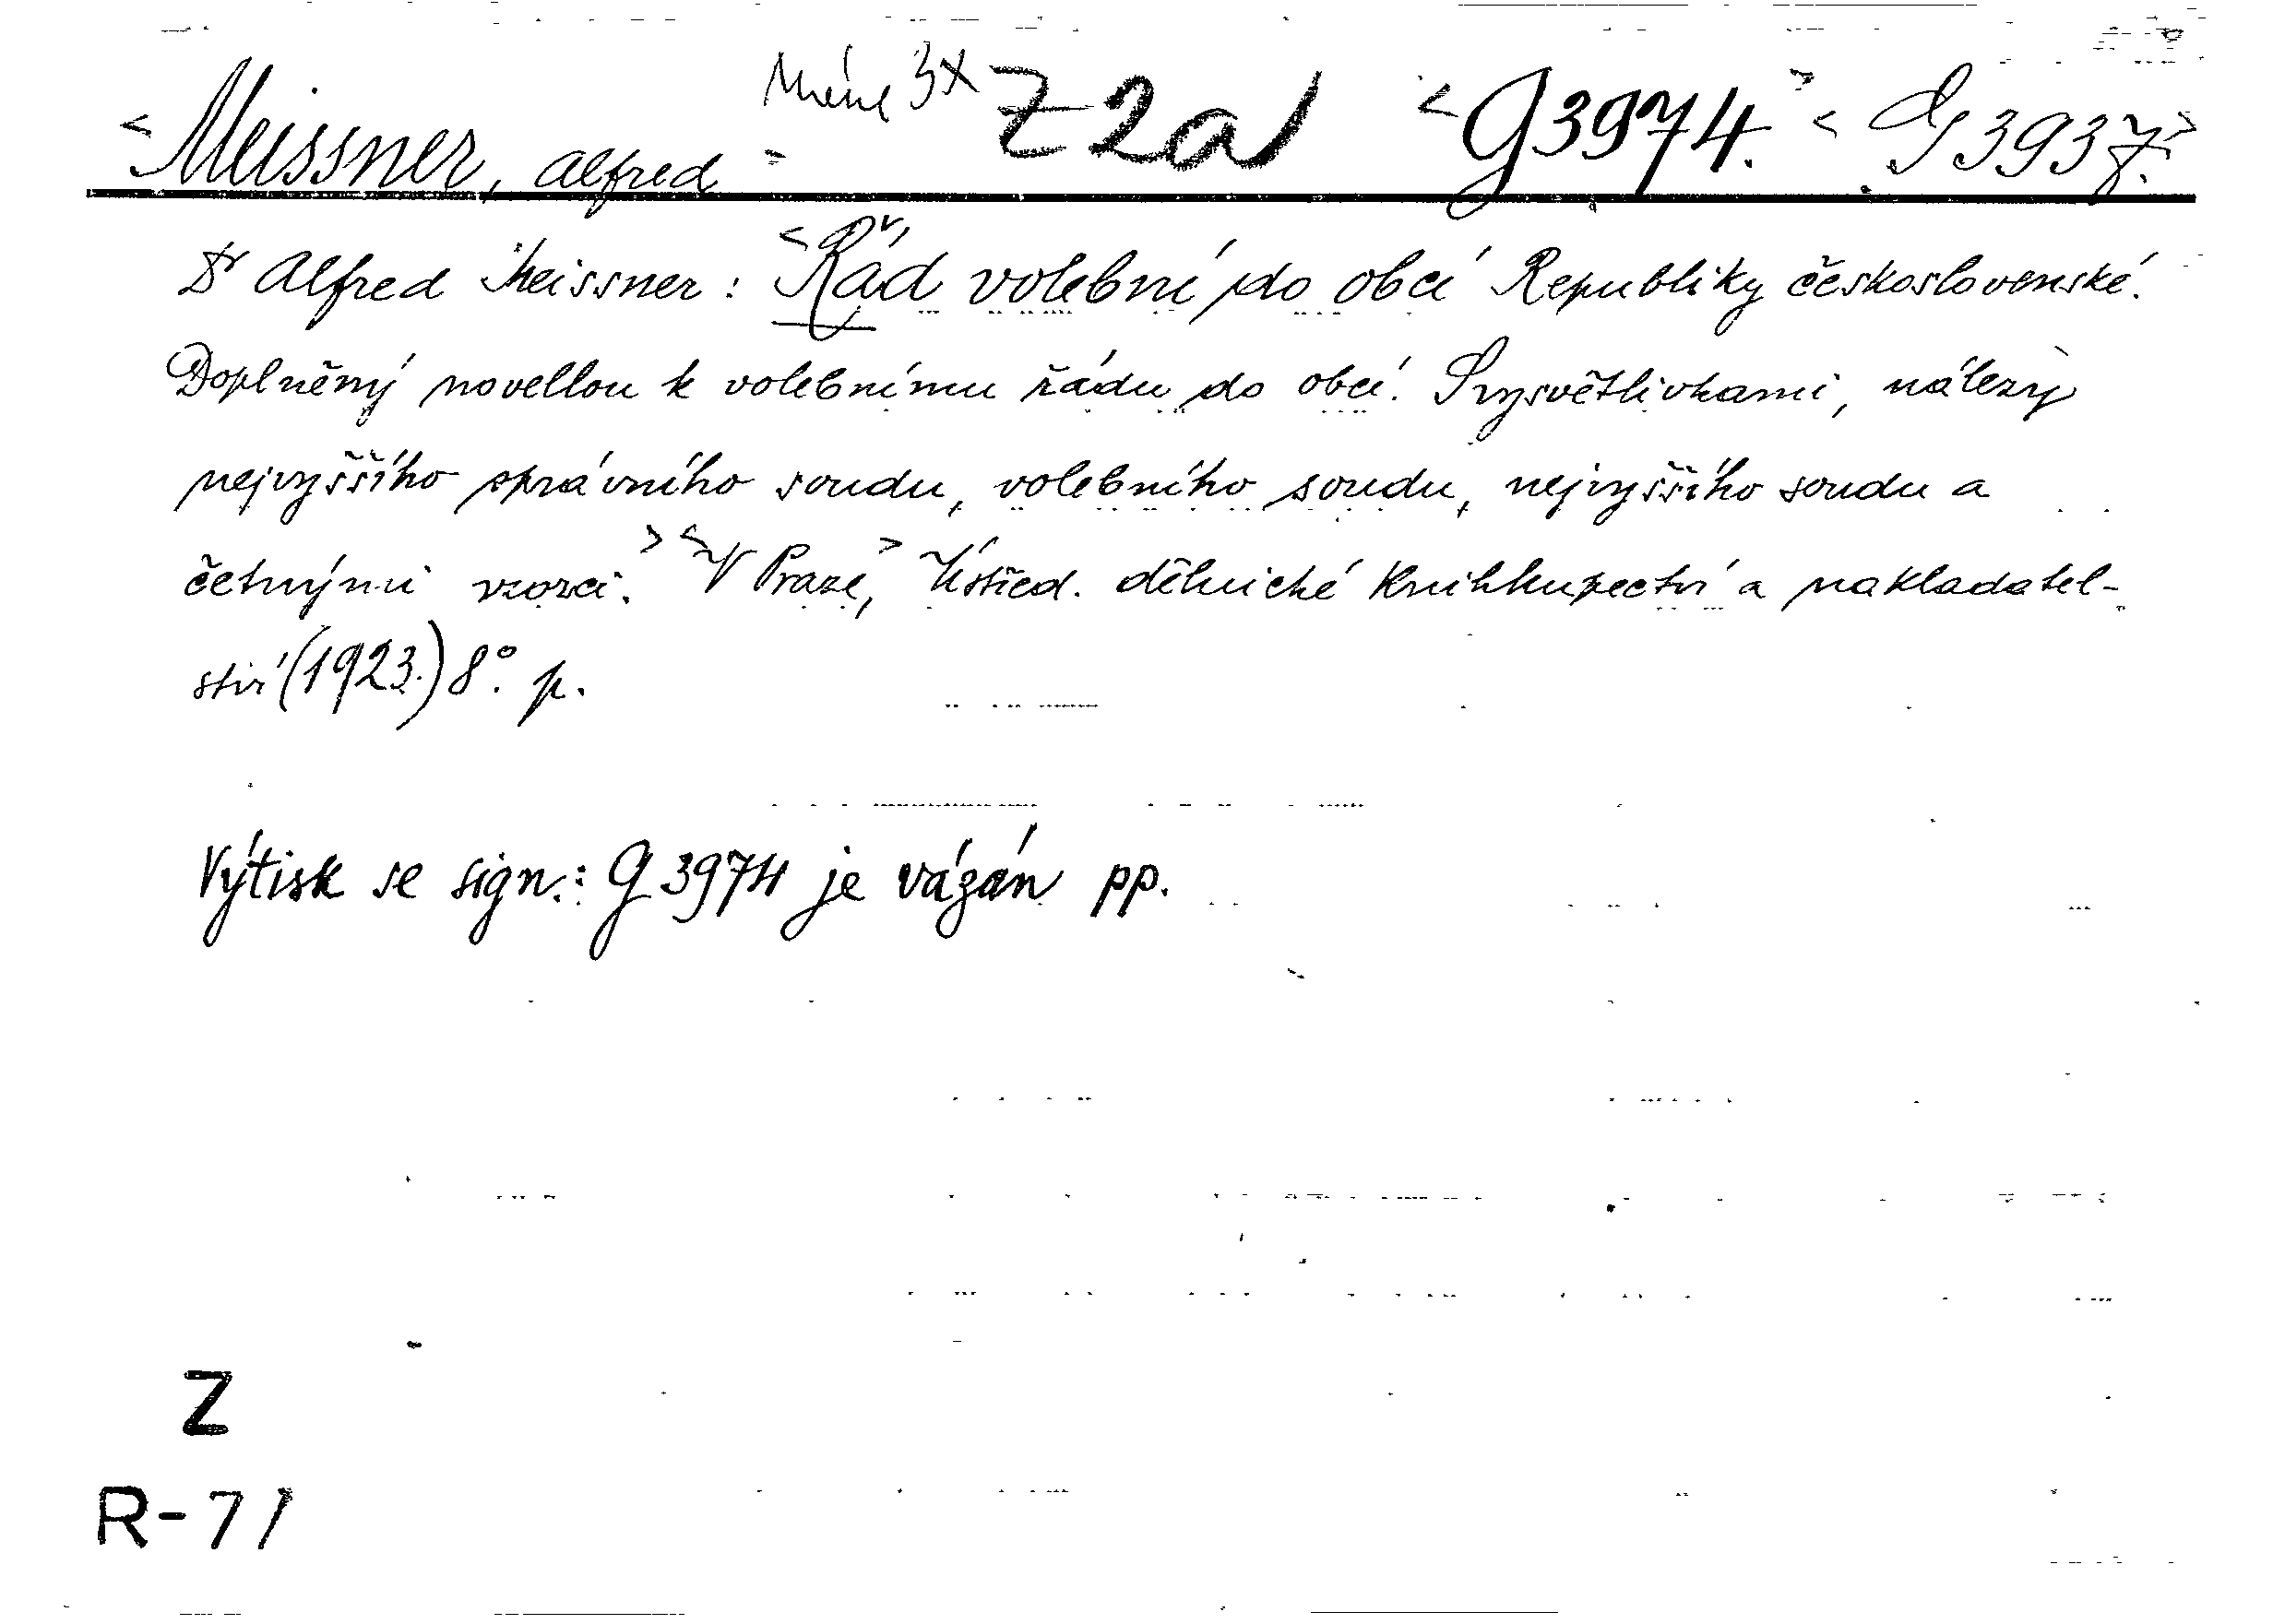 <Meissner, Alfred> 3x Z2a <G3974.> <G3937.>
Dr Alfred Meissner: <Řád volební do obcí Republiky československé.
Doplněný novellou k volebnímu řádu do obcí. S vysvětlivkami, nálezy
nejvyššího správního soudu, volebního soudu, nejvyššího soudu a
četnými vzorci.> <V Praze,> Ústřed. dělnické knihkupectví a nakladatel-
ství (1923.) 8°. p.
Výtisk se sign.: G 3974 je vázán pp.
Z
R-71